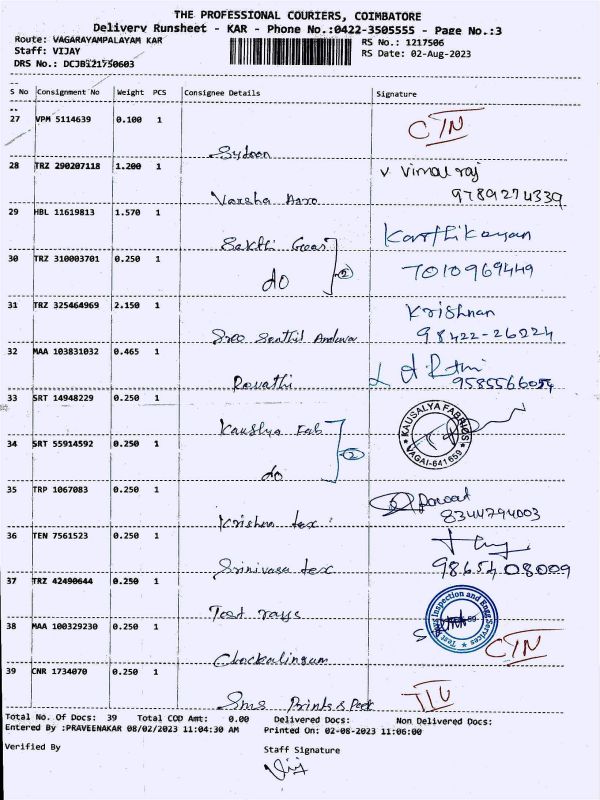 THE PROFESSIONAL COURIERS, COIMBATORE
Delivery Runsheet - KAR - Phone No.:0422-3505555 - Page No.:3
Route: VAGARAYAMPALAYAM KAR
RS No.: 1217506
Staff: VIJAY
RS Date: 02-Aug-2023
DRS No.: DCJB121750603
S No Consignment No Weight PCS Consignee Details Signature
27 VPM 5114639 0.100 1
CTN
28 TRZ 290207118 1.200 1 V Vimal raj
9789274339
Varsha
29 HBL 11619813 1.570 1
Sakthi Gears Karthikeyan
30 TRZ 310003701 0.250 1
do 2 7010969449
31 TRZ 325464969 2.150 1 Krishnan
Sree Senthil Andava 98422-26224
32 MAA 103831032 0.465 1
Revathi 9585566054
33 SRT 14948229 0.250 1
Kauslya Fab KAUSALYA FABRICS
VAGAI-641659
34 SRT 55914592 0.250 1 2
do
35 TRP 1067083 0.250 1
Krishna tex 8344794003
36 TEN 7561523 0.250 1
Srinivasa tex 9865408009
37 TRZ 42490644 0.250 1
Test rays Test Rays Inspection and Engg Services
38 MAA 100329230 0.250 1
Chockalingam CTN
39 CNR 1734070 0.250 1
Sms Prints & Pack
Total No. Of Docs: 39 Total COD Amt: 0.00 Delivered Docs: Non Delivered Docs:
Entered By :PRAVEENAKAR 08/02/2023 11:04:30 AM Printed On: 02-08-2023 11:06:00
Verified By Staff Signature